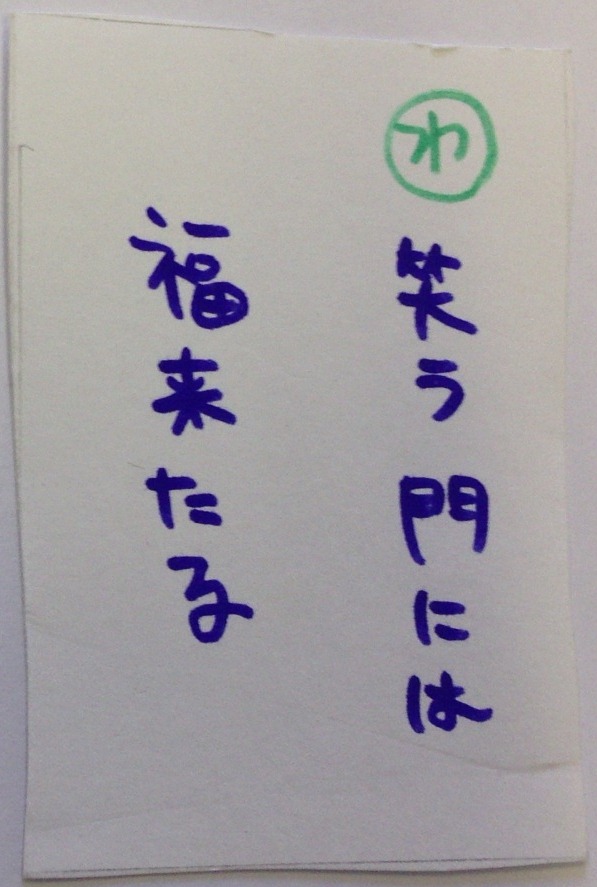 わ
笑う門には
福来たる